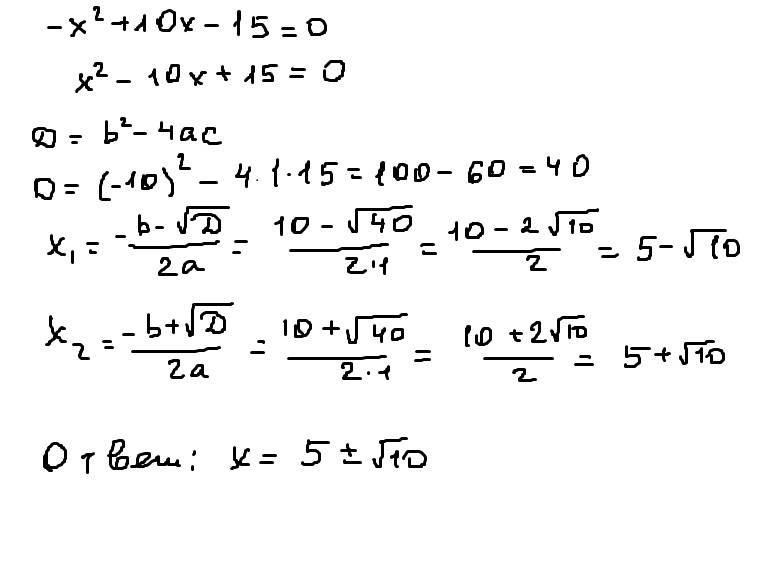 -x² + 10x - 15 = 0
x² - 10x + 15 = 0
D = b² - 4ac
D = (-10)² - 4·1·15 = 100 - 60 = 40
x₁ = (-b - √D)/(2a) = (10 - √40)/(2·1) = (10 - 2√10)/2 = 5 - √10
x₂ = (-b + √D)/(2a) = (10 + √40)/(2·1) = (10 + 2√10)/2 = 5 + √10
Ответ: x = 5 ± √10